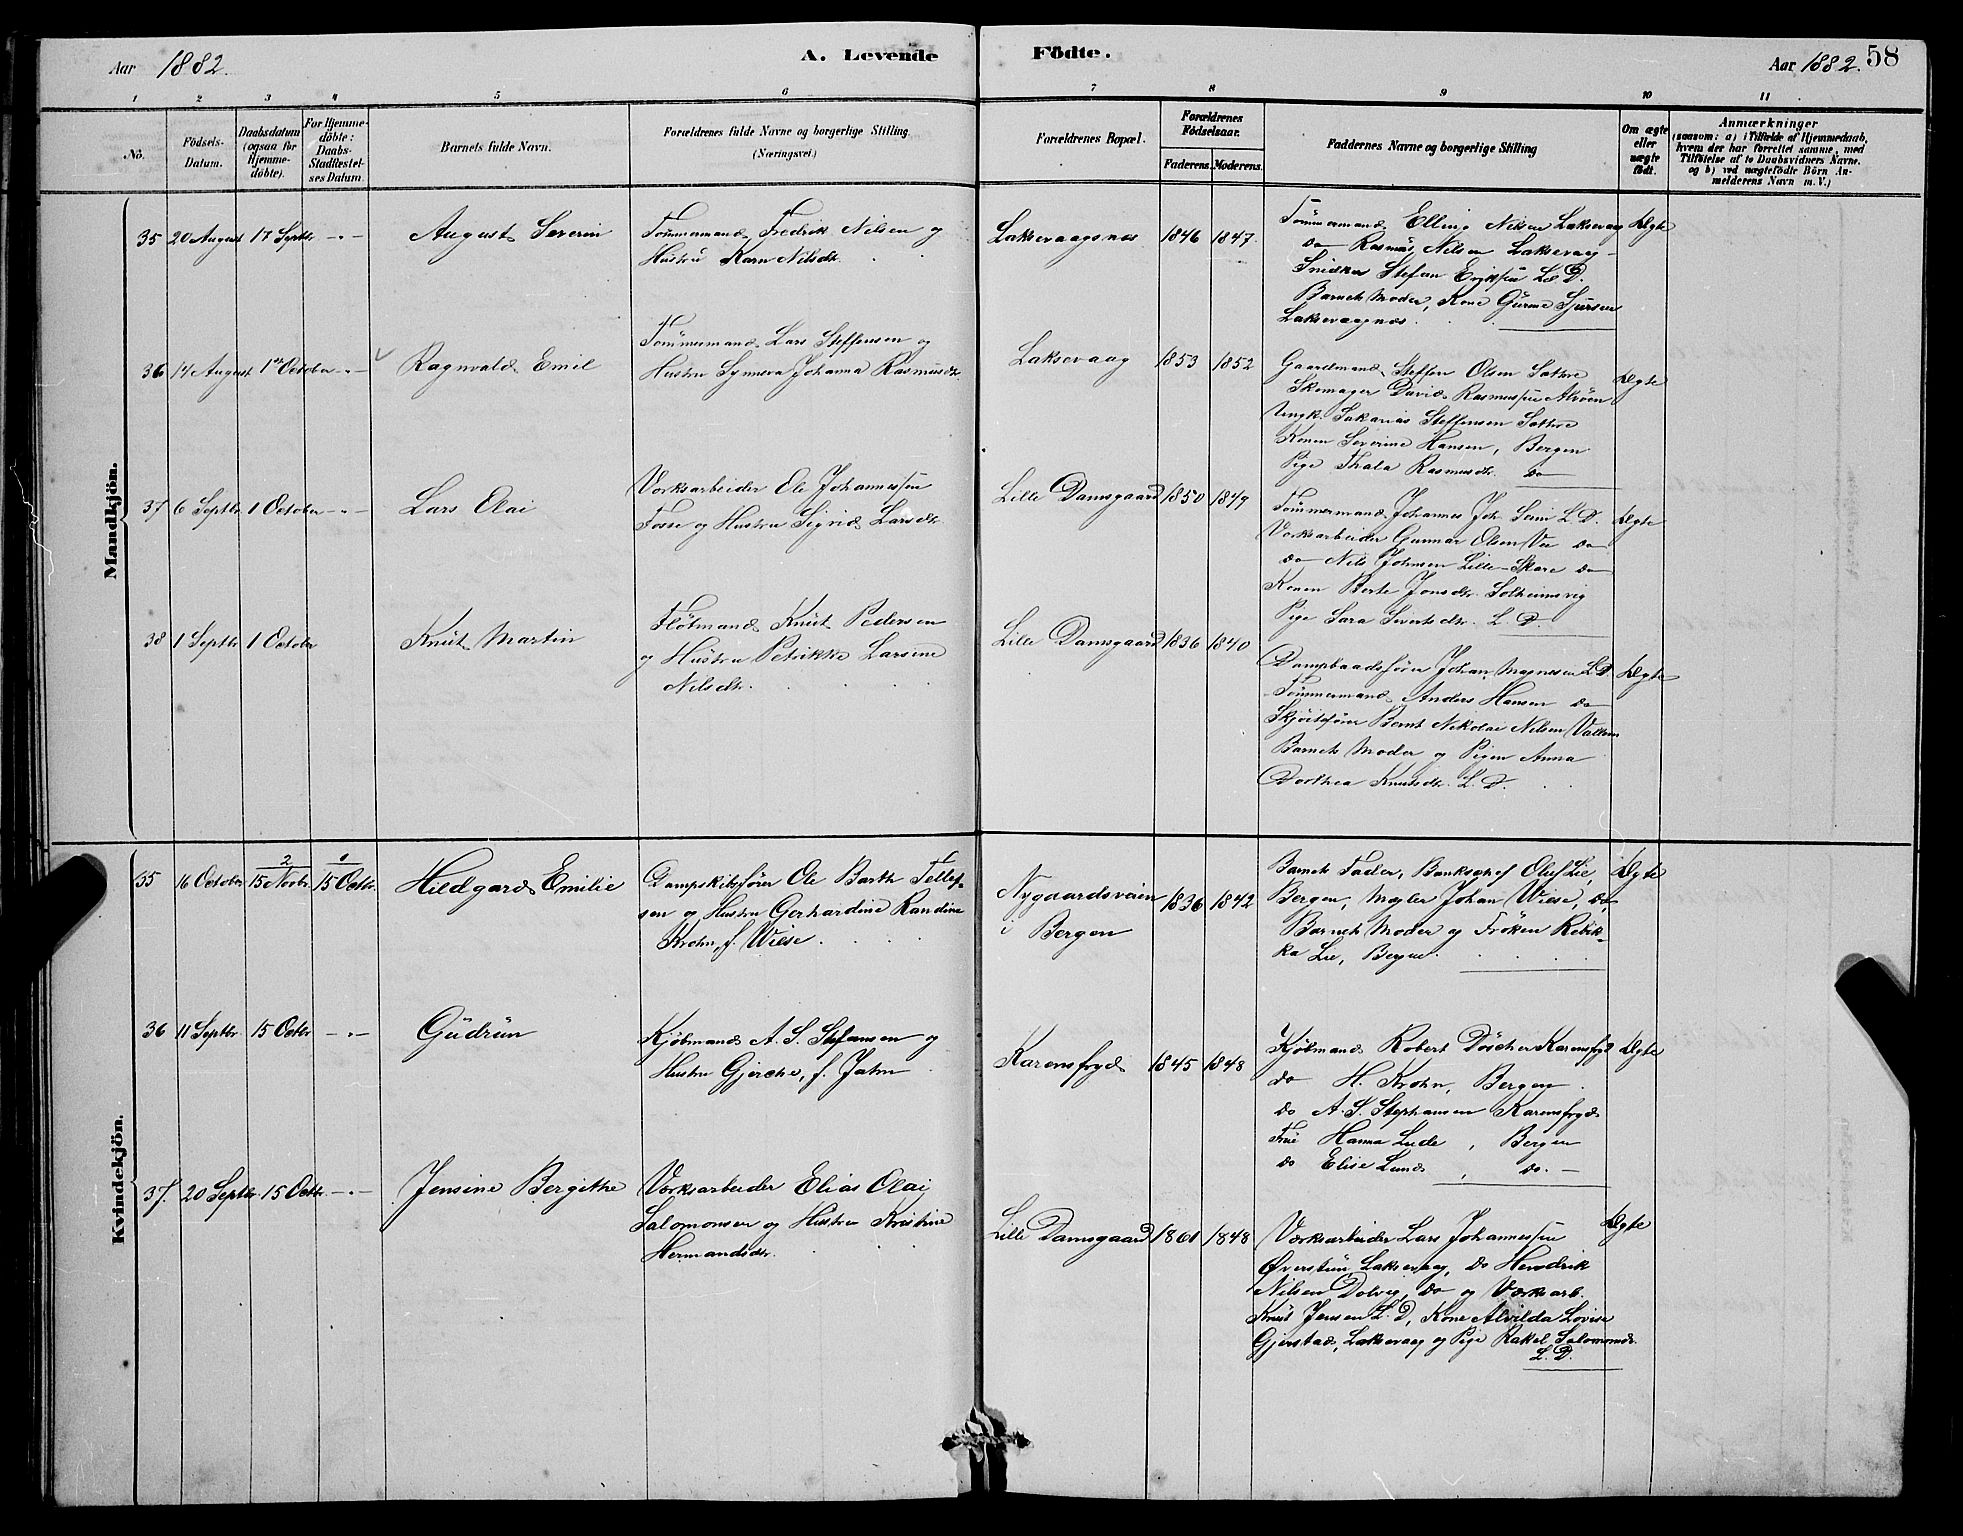 Aar 1882.
A. Levende
Födte.
Aar 1882. 58
1 2 3 4 5 6 7 8 9 10 11
No.
Födsels-Datum.
Daabsdatum (ogsaa for Hjemme-döbte).
For Hjemme-döbte: Daabs-Stadfæstel-ses Datum.
Barnets fulde Navn.
Forældrenes fulde Navne og borgerlige Stilling.
(Næringsvei.)
Forældrenes Bopæl.
Forældrenes Födselsaar.
Faderens. Moderens.
Faddernes Navne og borgerlige Stilling
Om ægte eller uægte födt.
Anmærkninger
(saasom: a) i Tilfælde af Hjemmedaab,
hvem der har forrettet samme, med
Tilföielse af to Daabsvidners Navne.
og b) ved uægtefödte Börn An-
melderens Navn m. V.)
Mandkjön.
35 20 August 17 Septbr. -"- August Severin
Tömmermand Fredrik Nilsen og
Hustru Karn Nilsdtr.
Laksevaagsnæs 1846 1847.
Tömmermand Elling Nilsen Laksevaag Ægte
do Rasmus Nilsen Laksevaag
Snidker Stefan Eriksen L. D.
Barnets Moder, Kone Gurine Sjursen
Laksevaagnæs.
36 14 August 1 October -"- Ragnvald Emil
Tömmermand Lars Steffensen og
Hustru Synneva Johanna Rasmusdtr.
Laksevaag 1853 1852
Gaardmand Steffen Olsen Sattre Ægte
Skomager David Rasmussen Alvöen
Ungk. Sakarias Steffensen Sattre
Konen Severine Hansen, Bergen
Pige Thala Rasmusdtr. do
37 6 Septbr. 1 October -"- Lars Olai
Værksarbeider Ole Johannessen
Fosse og Hustru Sigrid Larsdtr.
Lille Damsgaard 1850 1849
Tömmermand Johannes Joh. Seim L. D. Ægte
Værksarbeider Gunnar Olsen Vee do
do Nils Johnsen Lille-Skare do
Konen Berte Jonsdtr. Solheimsvig
Pige Sara Sivertsdtr. L. D.
38 1 Septbr. 1 October Knut Martin
Flötmand Knut Pedersen
og Hustru Petrikke Larsine
Nilsdtr.
Lille Damsgaard 1836 1840
Dampbaadsförer Johan Magnesen L. D. Ægte
Tömmermand Anders Hansen do
Skjöitsförer Bernt Nikolai Nilsen
Barnets Moder og Pigen Anna
Dorthea Knutsdtr. L. D.
Kvindekjön.
35 16 October 2/15 Novbr. 15 Octbr. Hildgard Emilie
Dampskibsförer Ole Barth Tellef-
sen og Hustru Gerhardine Randine
Krohn, f. Wiese.
Nygaardsveien
i Bergen
1836 1842
Barnets Fader, Bankchef Oluf Lie, Ægte
Bergen, Mægler Johan Wiese, do,
Barnets Moder og Fröken Rebek-
ka Lie, Bergen.
36 11 Septbr. 15 Octbr. -"- Gudrun
Kjöbmand A. S. Stefansen og
Hustru Gjerche, f. Jahn
Karensfryd 1845 1848
Kjöbmand Robert Döscher Karensfryd Ægte
do H. Krohn, Bergen
do A. S. Stephansen Karensfryd
Frue Hanna Lude, Bergen
do Elise Lund, do.
37. 20 Septbr. 15 Octbr. -"- Jensine Bergithe
Værksarbeider Elias Olai
Salomonsen og Hustru Kristine
Hermandsdtr.
Lille Damsgaard 1861 1848
Værksarbeider Lars Johannessen Ægte
Øverstun Laksevaag, do Hendrik
Nilsen Dolvig, do og Værksarb.
Knut Jensen L. D, Kone Alvilda Lovise
Gjerstad, Laksevaag og Pige Rakel Salomonsdr.
L. D.